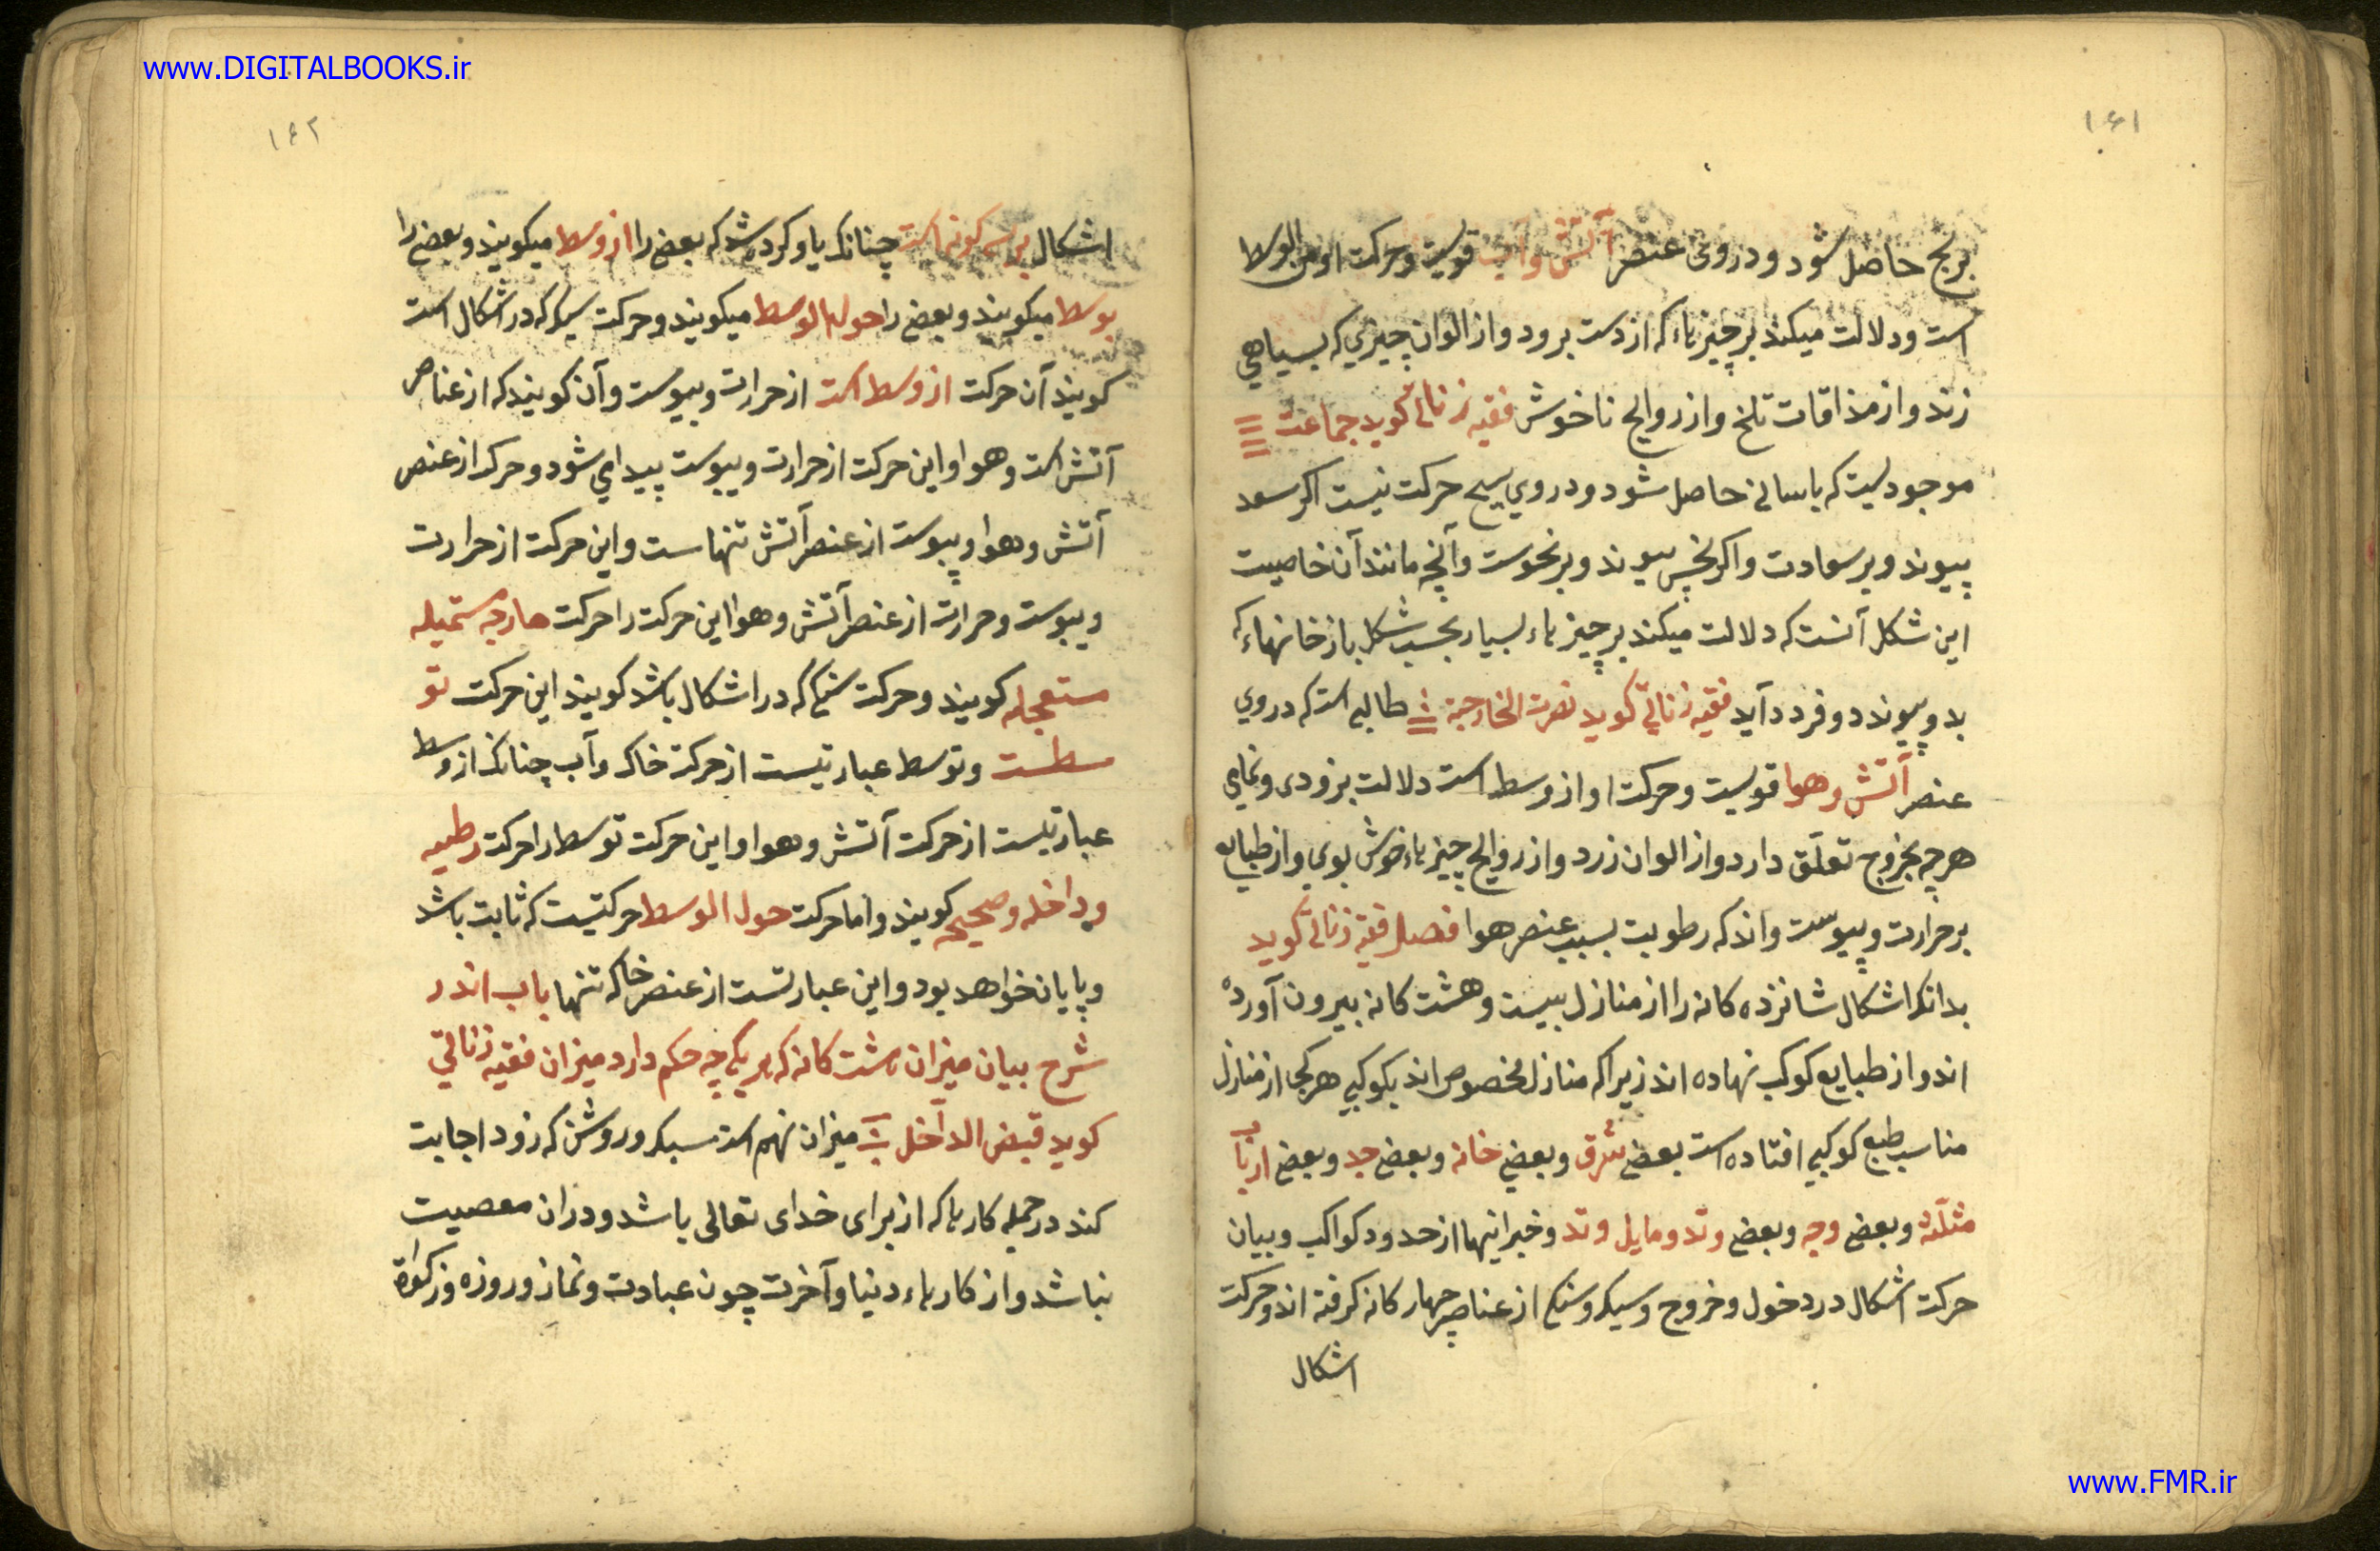 www.DIGITALBOOKS.ir
۱۶۱
برنج حاصل شود و در وی عنصر آتش و آب قویست و حرکت او من الوسط
است و دلالت میکند بر چیزهاء که از دست برود و از الوان چیزي که بسیاهي
زند و از مذاقات تلخ و از روایح ناخوش فقیه زناتي کوید جماعت
موجودیست که باسانی حاصل شود و در وي هیچ حرکت نیست اکر بسعد
پیوندد بر سعادت و اکر بنحس پیوندد بر نحوست و آنچه مانند آن خاصیت
این شکل آنست که دلالت میکند بر چیزهاء بسیار بحسب شکل باز خانهاء که
بدو پیوندد و فرد درآید فقیه زناتي کوید نصرت الخارجة طالبی است که در وي
عنصر آتش و هوا قویست و حرکت او از وسط است دلالت بزودی و تمامي
هرچه بخروج تعلق دارد و از الوان زرد و از روایح چیزهاء خوش بوي و از طبایع
بر حرارت و یبوست و اندکه رطوبت بسبب عنصر هوا فصل فقیه زناتي کوید
بدانکه اشکال شانزده کانه را از منازل بیست و هشت کانه بیرون آورده
اند و از طبایع کوکب نهاده اند زیرا که منازل مخصوص اند بکوکبي هرکجا از منازل
مناسب طبع کوکبي افتاده است بعض شرق و بعضي خانه و بعض حد و بعض ارباب
مثلثه و بعض وجه و بعض وتد و مایل وتد و خبر اینها از حدود کواکب و بیان
حرکت اشکال در دخول و خروج و سبکي و سنکي از عناصر چهار کانه کرفته اند و حرکت
اشکال
۱۶۲
اشکال بر سه کونه است چنانکه یاد کرده شد که بعض را از وسط میکویند و بعض را
بوسط میکویند و بعض را حول الوسط میکویند و حرکت سبکي که در اشکال است
کویند آن حرکت از وسط است از حرارت و یبوست و آن کویند که از عناصر
آتش است و هوا و این حرکت از حرارت و یبوست پیدا مي شود و حرکت از عنصر
آتش و هوا و یبوست از عنصر آتش تنها ست و این حرکت از حرارت
و یبوست و حرارت از عنصر آتش و هوا این حرکت را حرکت خارجه مستمیله
مستعجله کویند و حرکت سنکي که در اشکال باشد کویند این حرکت تو
سطست و توسط عبارتیست از حرکت خاک و آب چنانکه از وسط
عبارتیست از حرکت آتش و هوا و این حرکت توسط را حرکت رطبه
و داخله و صحیحه کویند و اما حرکت حول الوسط حرکتیست که ثابت باشد
و پایان خواهد بود و این عبارتست از عنصر خاک تنها باب اندر
شرح بیان میزان هشت کانه که هر یکي چه حکم دارد میزان فقیه زناتي
کوید قبض الداخل میزان نهم است سبک و روشن که زود اجابت
کند در جمله کارها که از برای خدای تعالی باشد و در ان معصیت
نباشد و از کارهاء دنیا و آخرت چون عبادت و نماز و روزه و زکوة
www.FMR.ir